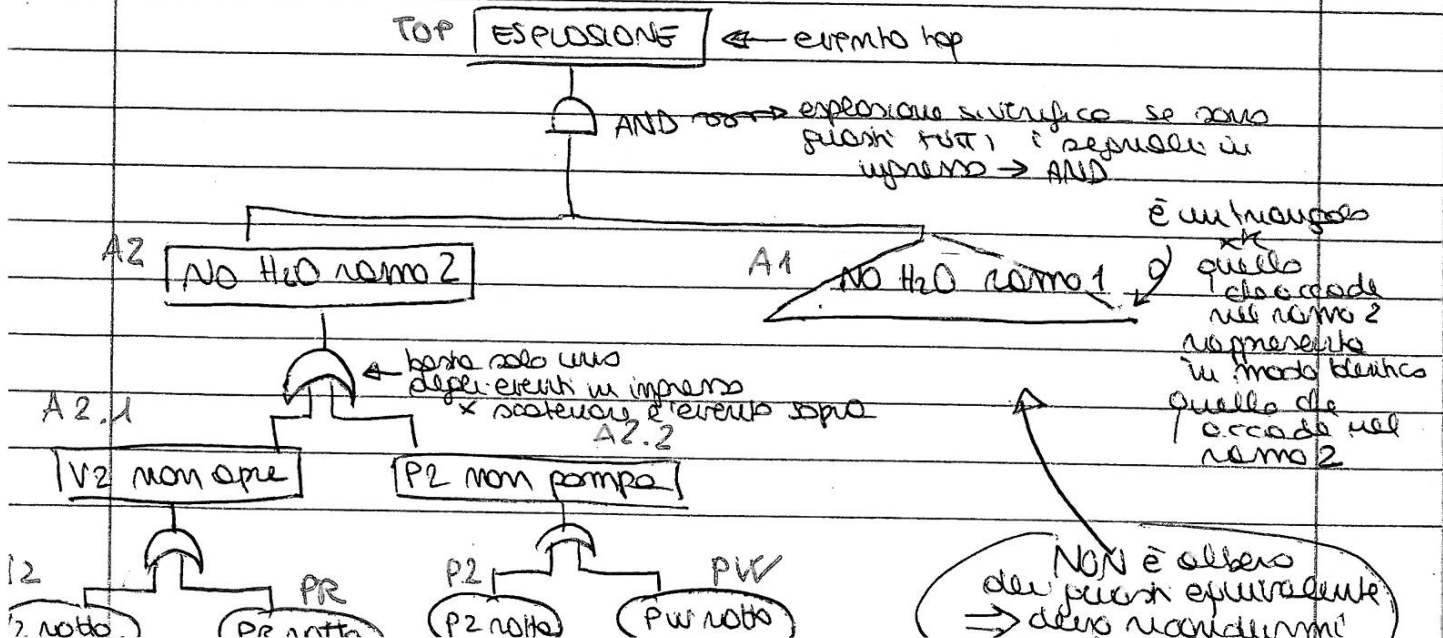 TOP ESPLOSIONE ← evento top
AND → esplosione si verifica se sono
guasti tutti i segnali in
ingresso → AND
è un triangolo
xk
quello
che accade
nel ramo 2
rappresenta
in modo identico
quello che
accade nel
ramo 2
A2 NO H2O ramo 2
A1 NO H2O ramo 1
← basta solo uno
degli eventi in ingresso
x scatenare l'evento sopra
A2.1
A2.2
V2 non apre
P2 non pompa
PR
P2
PW
PR rotto
P2 rotto
PW rotto
NON è albero
dei guasti equivalente
⇒ devo ricondurmi